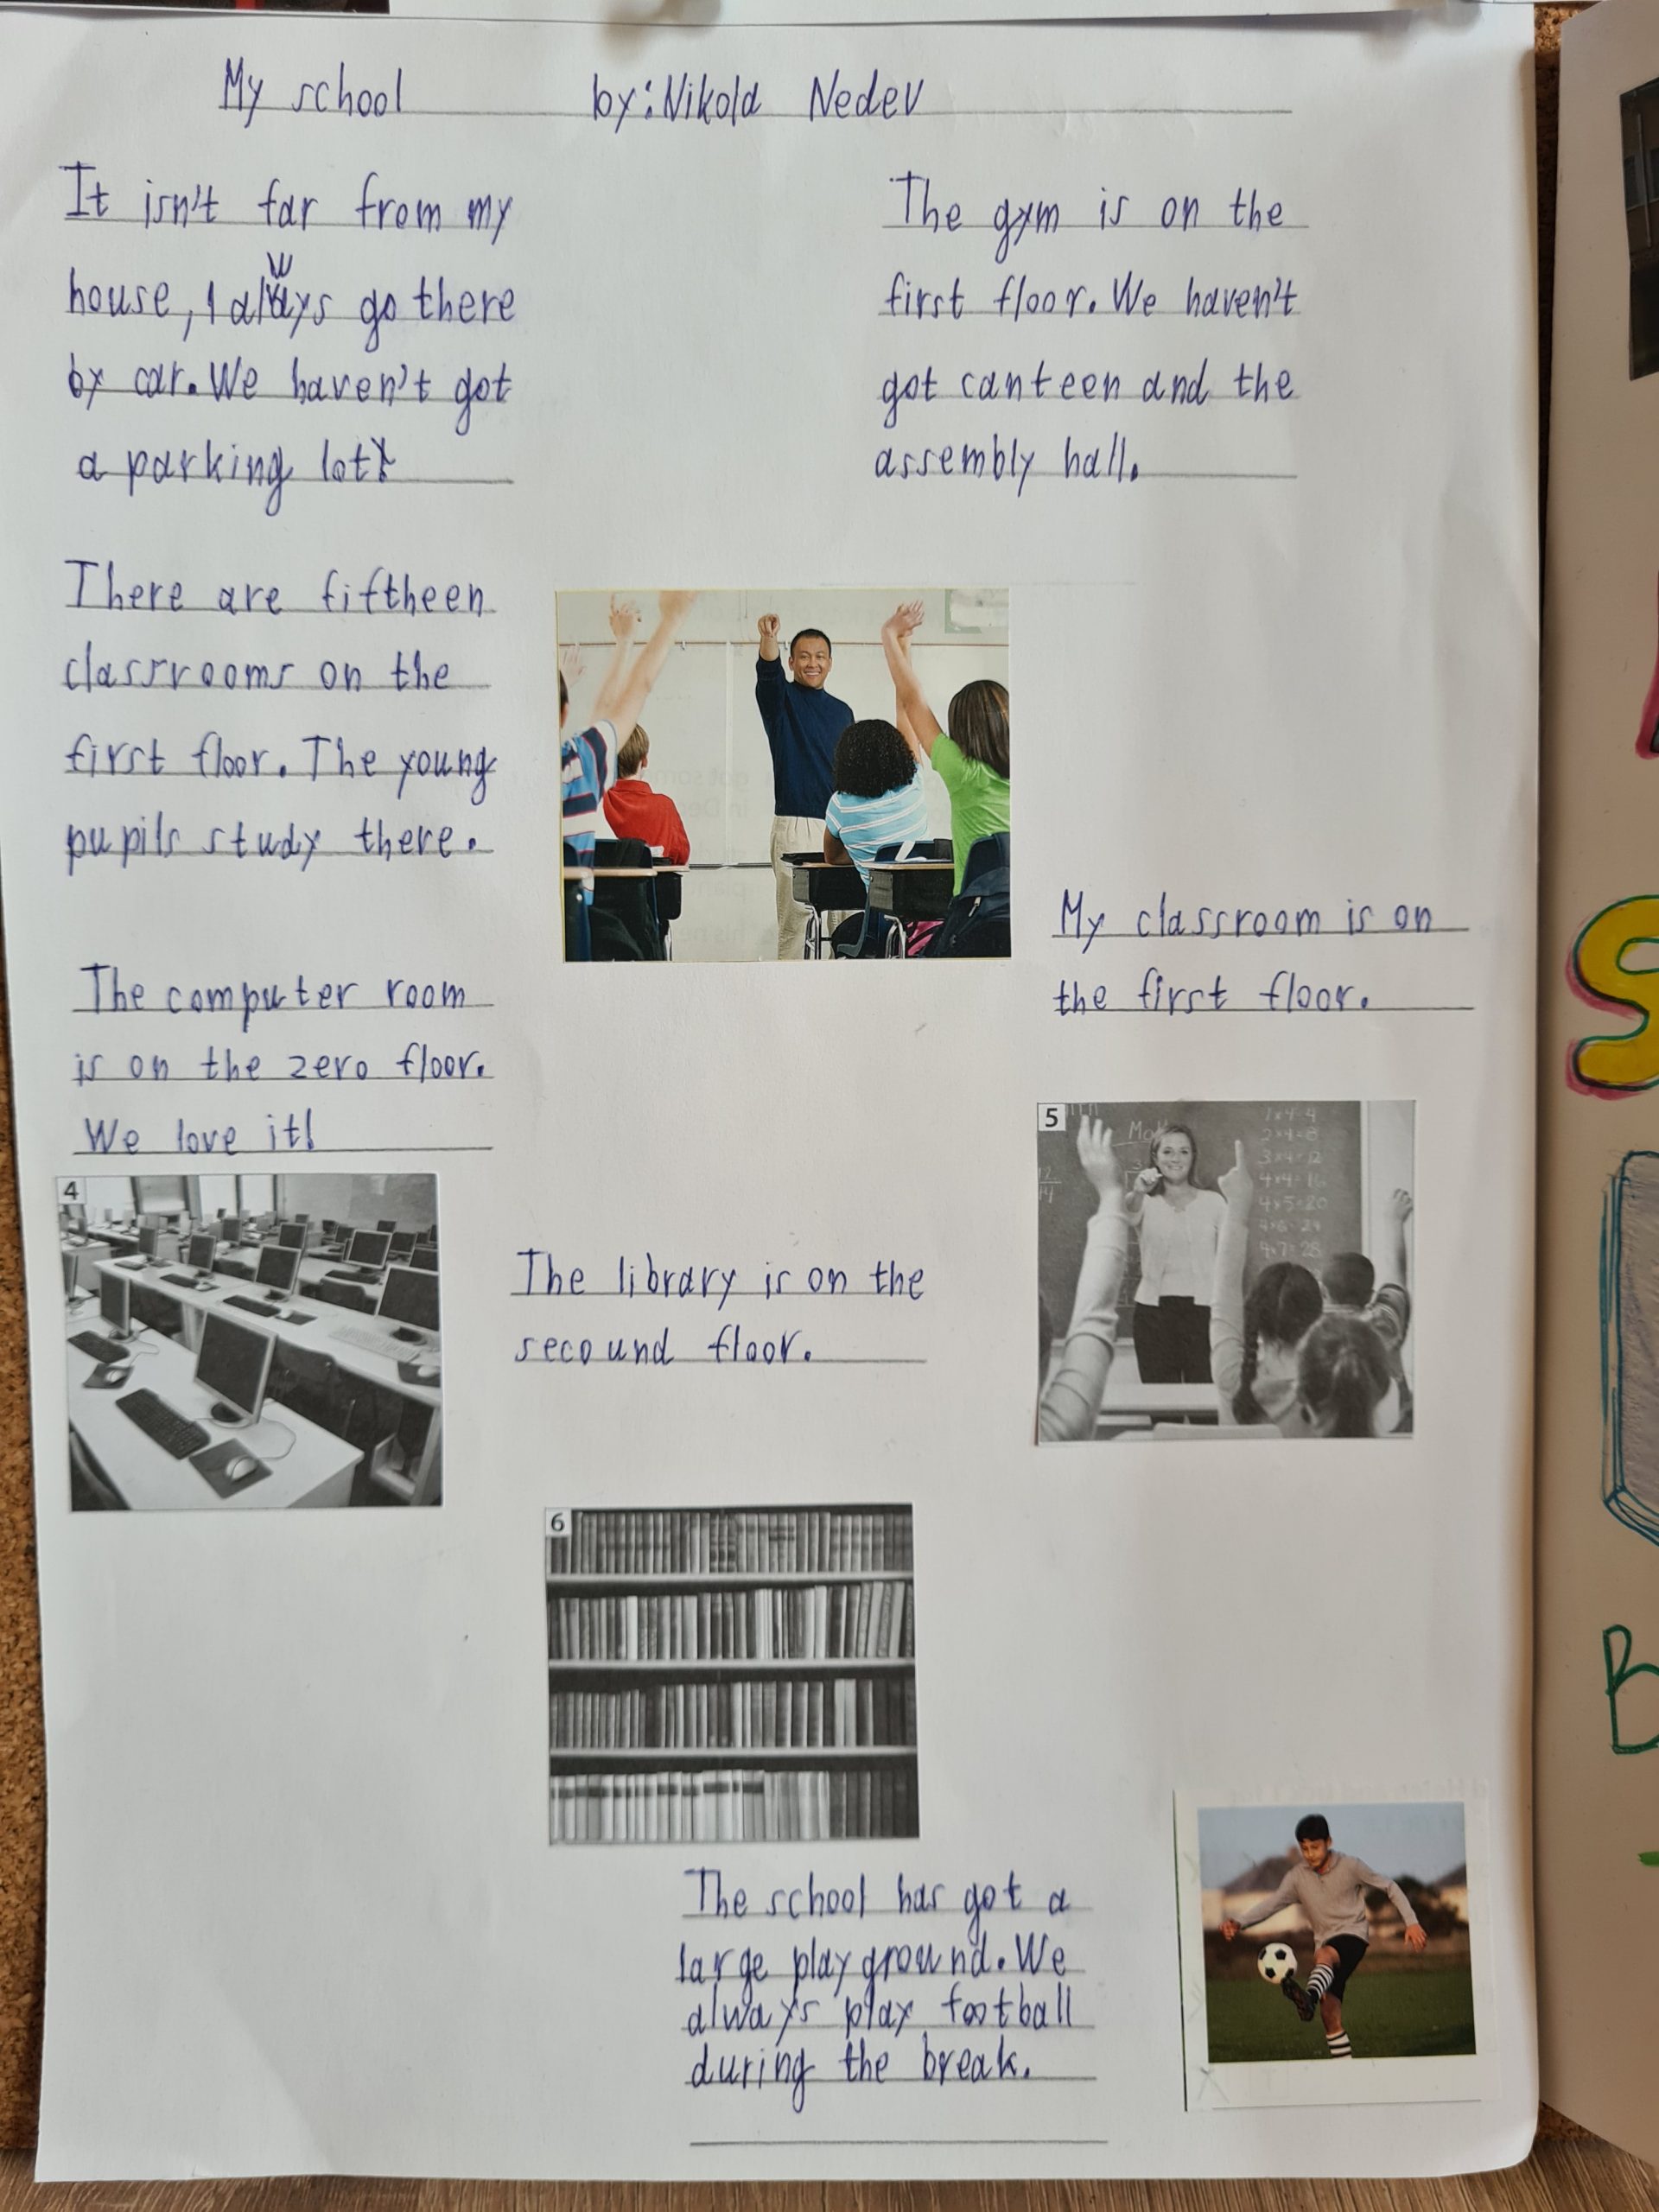 My school by: Nikola Nedev
It isn't far from my
house, I always go there
by car. We haven't got
a parking lot.
The gym is on the
first floor. We haven't
got canteen and the
assembly hall.
There are fiftheen
classrooms on the
first floor. The young
pupils study there.
My classroom is on
the first floor.
The computer room
is on the zero floor.
We love it!
4
5
Math
1x4=4
2x4=8
3x4=12
4x4=16
4x5=20
4x6=24
4x7=28
12
14
The library is on the
secound floor.
6
The school has got a
large playground. We
always play football
during the break.
S
B